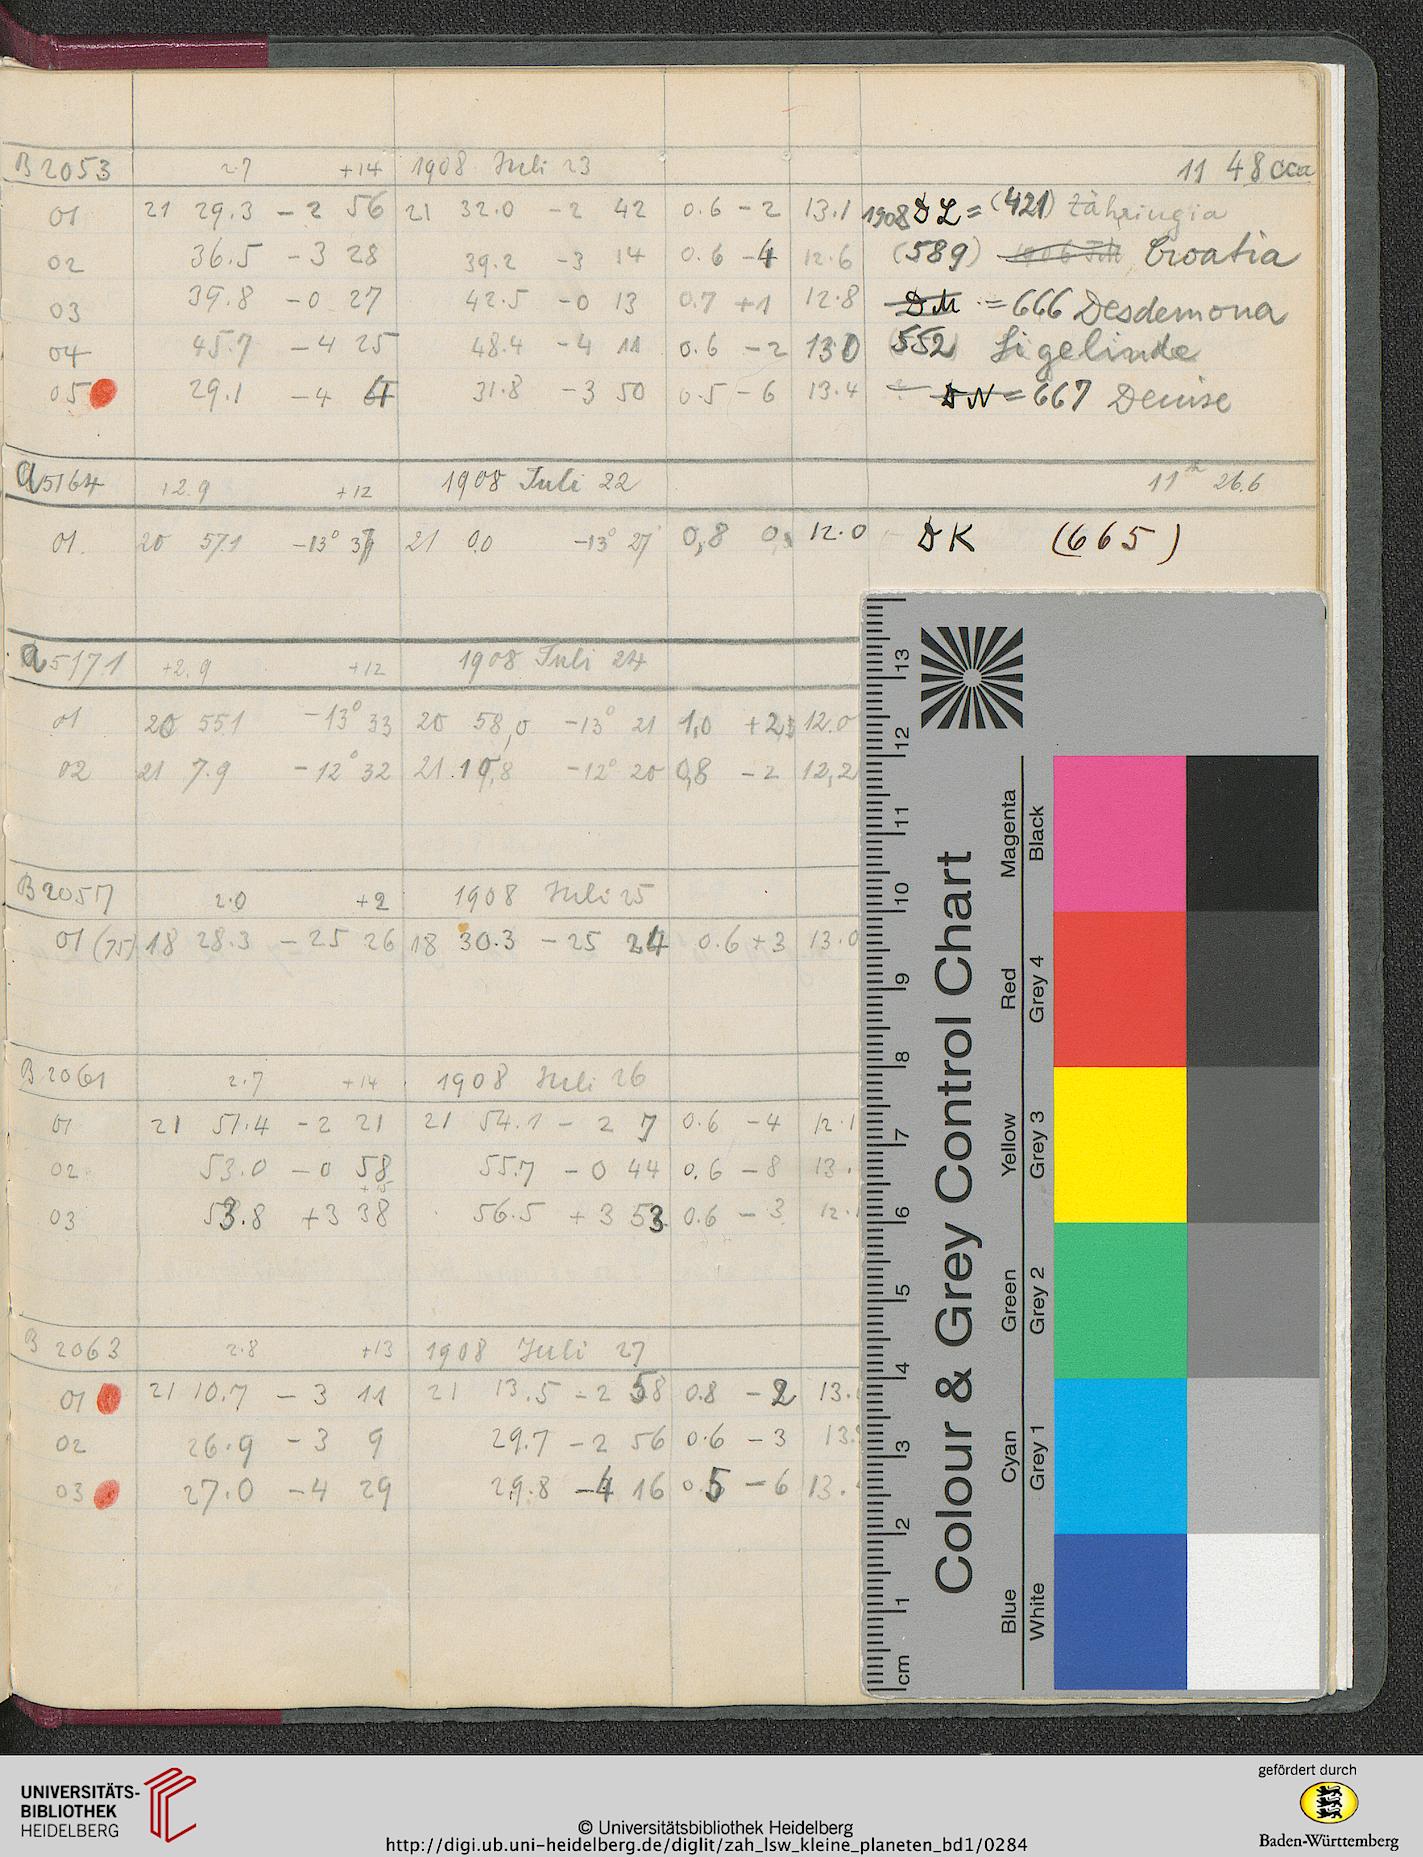 B 2053 2.7 +14 1908 Juli 23 11 48 cca
01 21 29.3 -2 56 21 32.0 -2 42 0.6 -2 13.1 1908 DL = (421) Zähringia
02 36.5 -3 28 39.2 -3 14 0.6 -4 12.6 (589) Croatia
03 39.8 -0 27 42.5 -0 13 0.7 +1 12.8 DM = 666 Desdemona
04 45.7 -4 25 48.4 -4 11 0.6 -2 13.0 552 Sigelinde
05 29.1 -4 31.8 -3 50 0.5 -6 13.4 DN = 667 Denise
a 5164 +2.9 +12 1908 Juli 22 11h 26.6
01. 20 57.1 -13° 21 0.0 -13° 27 0,8 12.0 DK (665)
a 5171 +2.9 +12 1908 Juli 24
01 20 55.1 -13° 33 20 58,0 -13° 21 1,0 12.0
02 21 7.9 -12° 32 21 10,8 -12° 20 0,8 -2 12,2
B 2057 2.0 +2 1908 Juli 25
01 (75) 18 28.3 -25 26 18 30.3 -25 24 0.6 +3 13.0
B 2061 2.7 +14 1908 Juli 26
01 21 51.4 -2 21 21 54.1 -2 7 0.6 -4 12.1
02 53.0 -0 58 55.7 -0 44 0.6 -8 13.
+15
03 53.8 +3 38 56.5 +3 53 0.6 -3 12.
B 2063 2.8 +13 1908 Juli 27
01 21 10.7 -3 11 21 13.5 -2 58 0.8 -2 13.
02 26.9 -3 9 29.7 -2 56 0.6 -3 13.
03 27.0 -4 29 29.8 -4 16 0.5 -6 13.
cm 1 2 3 4 5 6 7 8 9 10 11 12 13
Colour & Grey Control Chart
Blue Cyan Green Yellow Red Magenta
White Grey 1 Grey 2 Grey 3 Grey 4 Black
UNIVERSITÄTS-
BIBLIOTHEK
HEIDELBERG
© Universitätsbibliothek Heidelberg
http://digi.ub.uni-heidelberg.de/diglit/zah_lsw_kleine_planeten_bd1/0284
gefördert durch
Baden-Württemberg